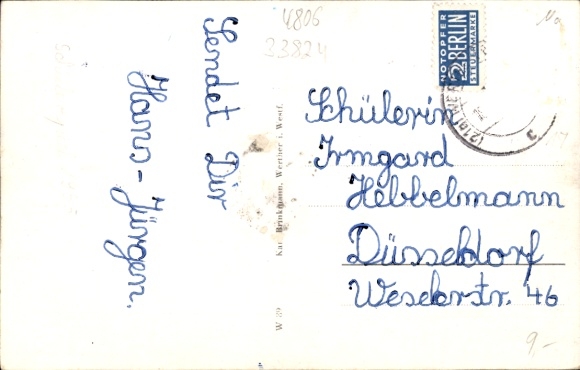 4806
33824
Sendet Dir
Hans-Jürgen.
W 89
Kat. Brinkmann, Werther i. Westf.
NOTOPFER
2 BERLIN
STEUERMARKE
Schülerin
Irmgard
Hebbelmann
Düsseldorf
Weselerstr. 46
9,-